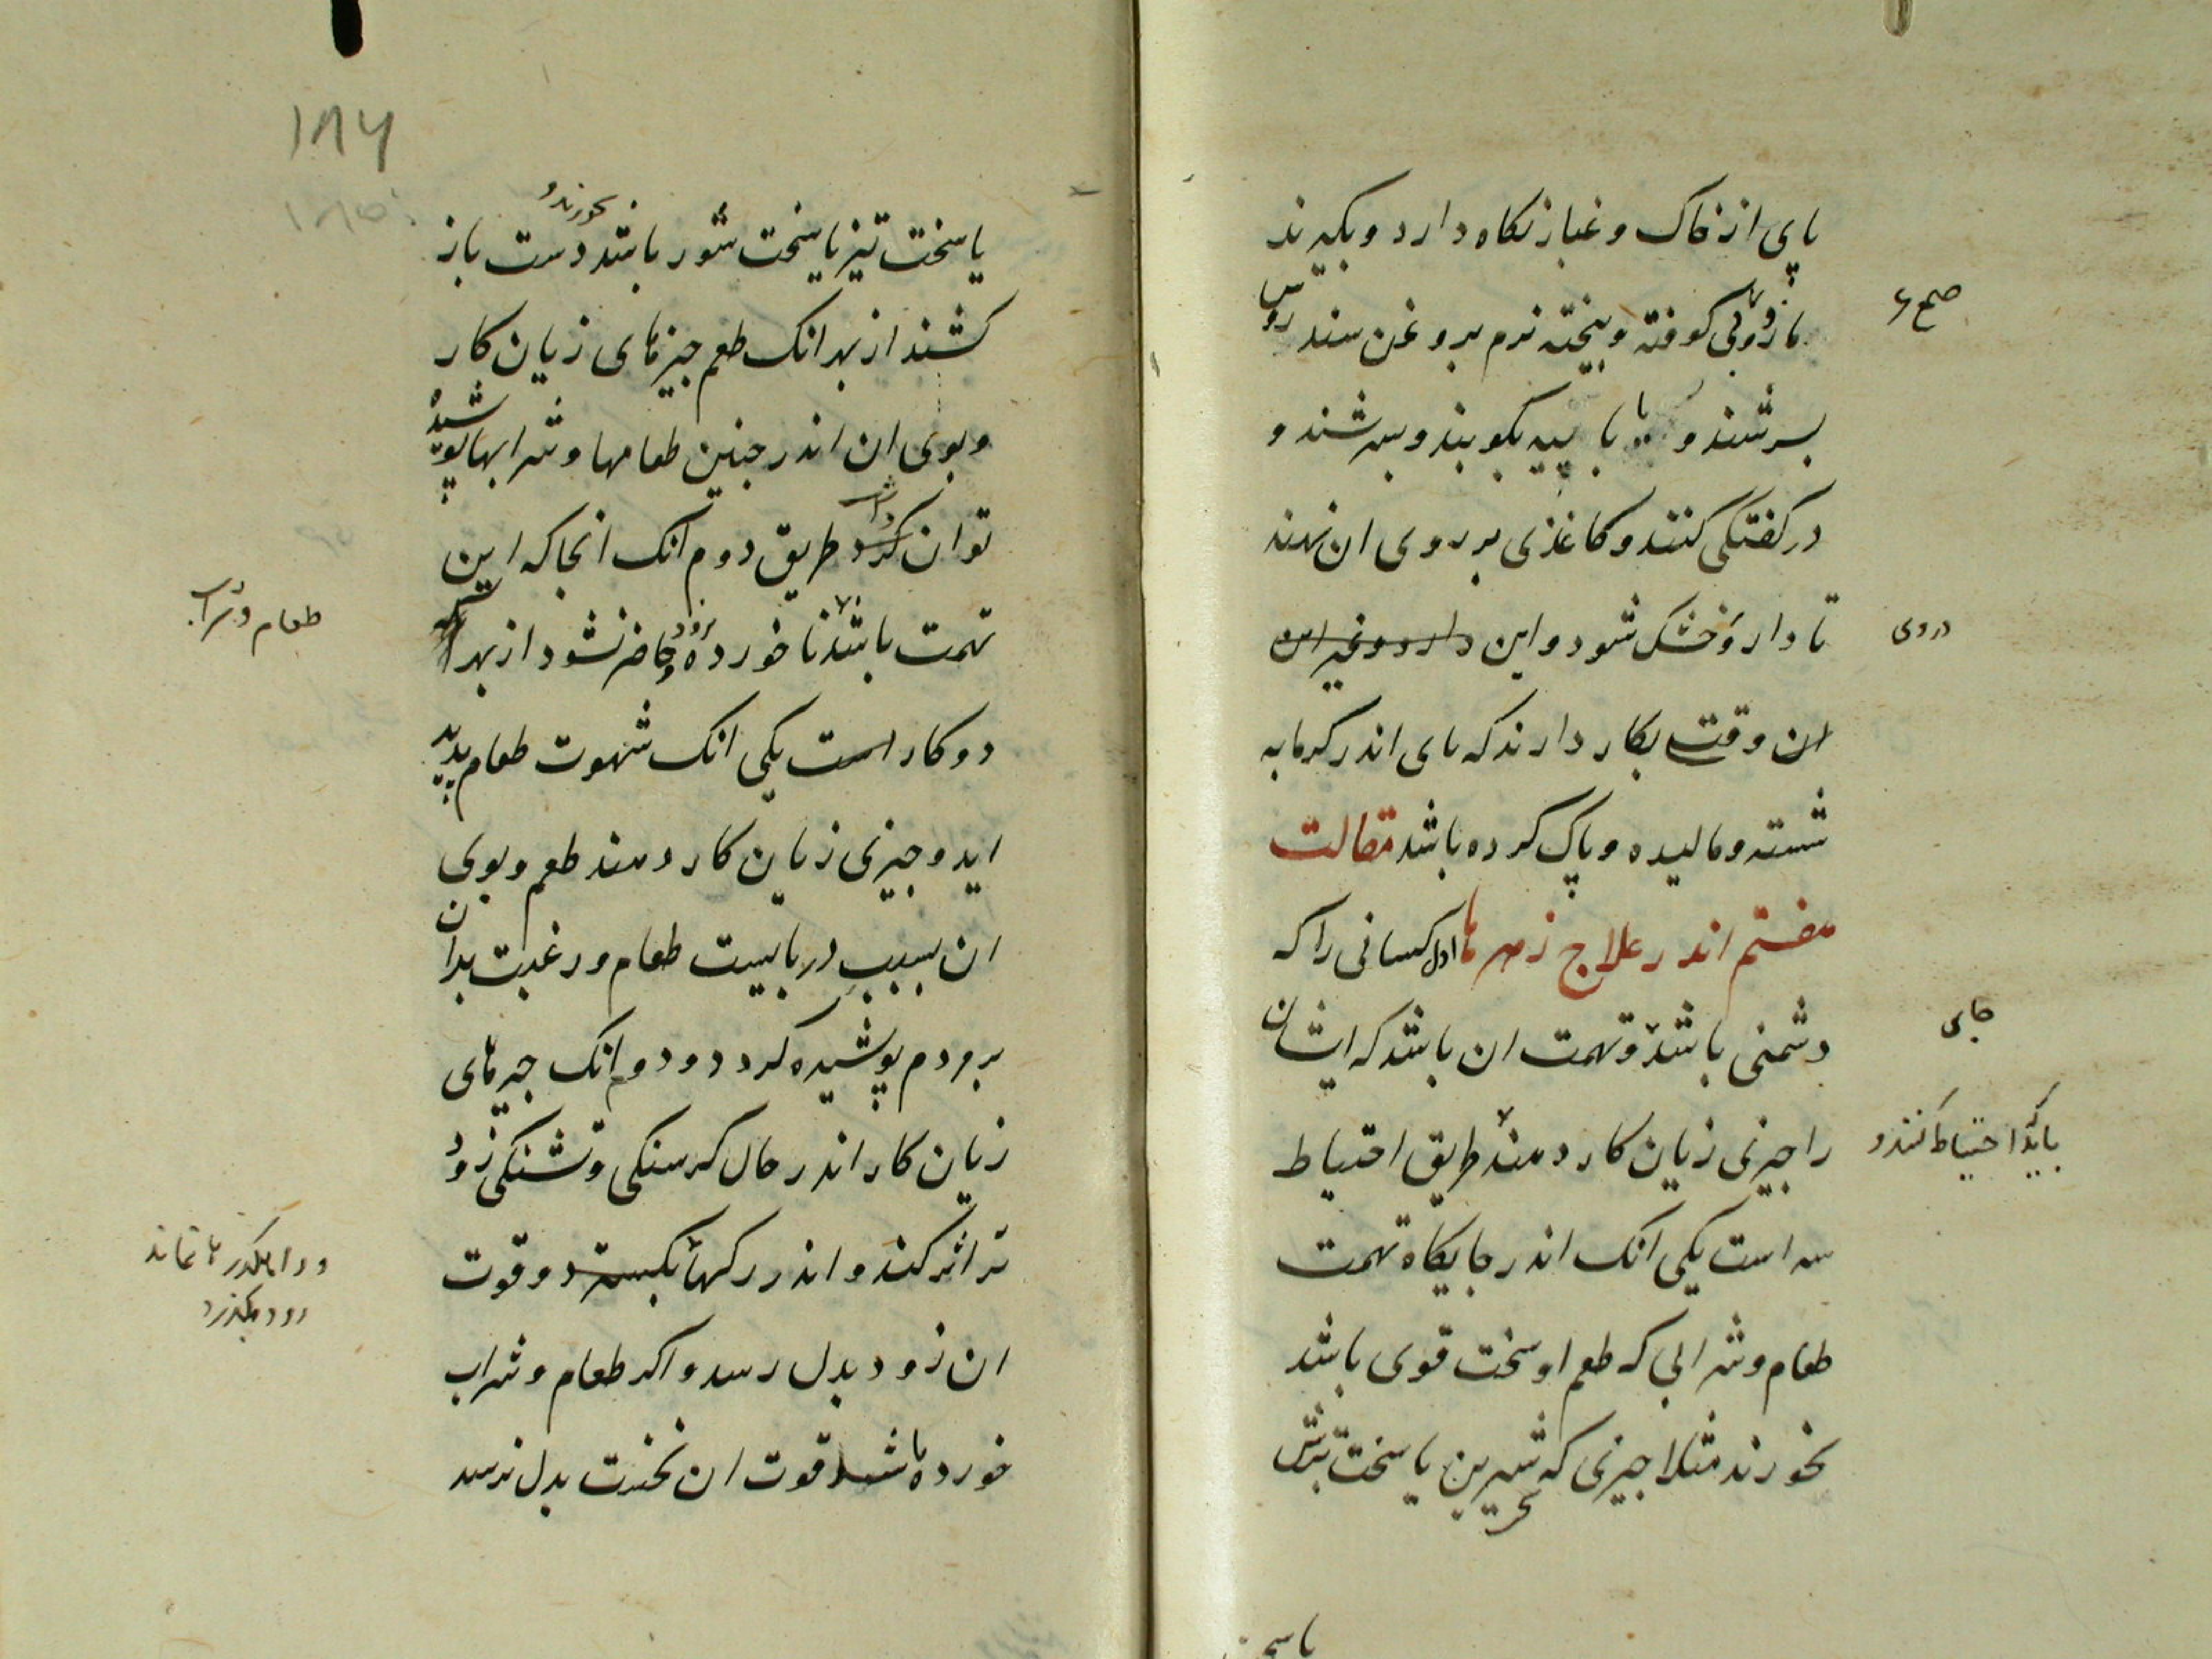 پای از خاک و غبار نکاه دارد و بکیرند
مازوی کوفته و بیخته نرم بروغن سندروس
بسرشند و یا با پیه بکوبند و بسرشند و
در کفتکی کنند و کاغذی بر روی ان نهند
تا دارو خشک شود و این دارو و غیر این
ان وقت بکار دارند که پای اندر کرمابه
شسته و مالیده و پاک کرده باشد مقالت
هفتم اندر علاج زهرها اول کسانی را که
دشمنی باشد و تهمت ان باشد که ایشان
را چیزی زیان کار دهند طریق احتیاط
سه است یکی انک اندر جایکاه تهمت
طعام و شرابی که طعم او سخت قوی باشد
نخورند مثلا جیزی که شیرین یا سخت ترش
یا سخت
صح
دردی
جای
باید احتیاط کنند و
۱۸۶
۱۸۵
یا سخت تیز یا سخت شور باشد نخورند و دست باز
کشند از بهر انک طعم جیزهای زیان کار
و بوی ان اندر جنین طعامها و شرابها پوشیده
توان کرد داشت طریق دوم انک انجا که این
تهمت باشد ناخورده حاضر نشود از بهر انک
دو کار است یکی انک شهوت طعام پدید
اید و جیزی زیان کار دهند طعم و بوی
ان بسبب دربایست طعام و رغبت بدان
بر مردم پوشیده کردد و دوم انک جیزهای
زیان کار اندر حال کرسنکی و تشنکی زود
تر اثر کند و اندر رکها بکسترد و قوت
ان زود بدل رسد و اکر طعام و شراب
خورده باشد قوت ان نخست بدل نرسد
طعام و شراب
زود بکذرد